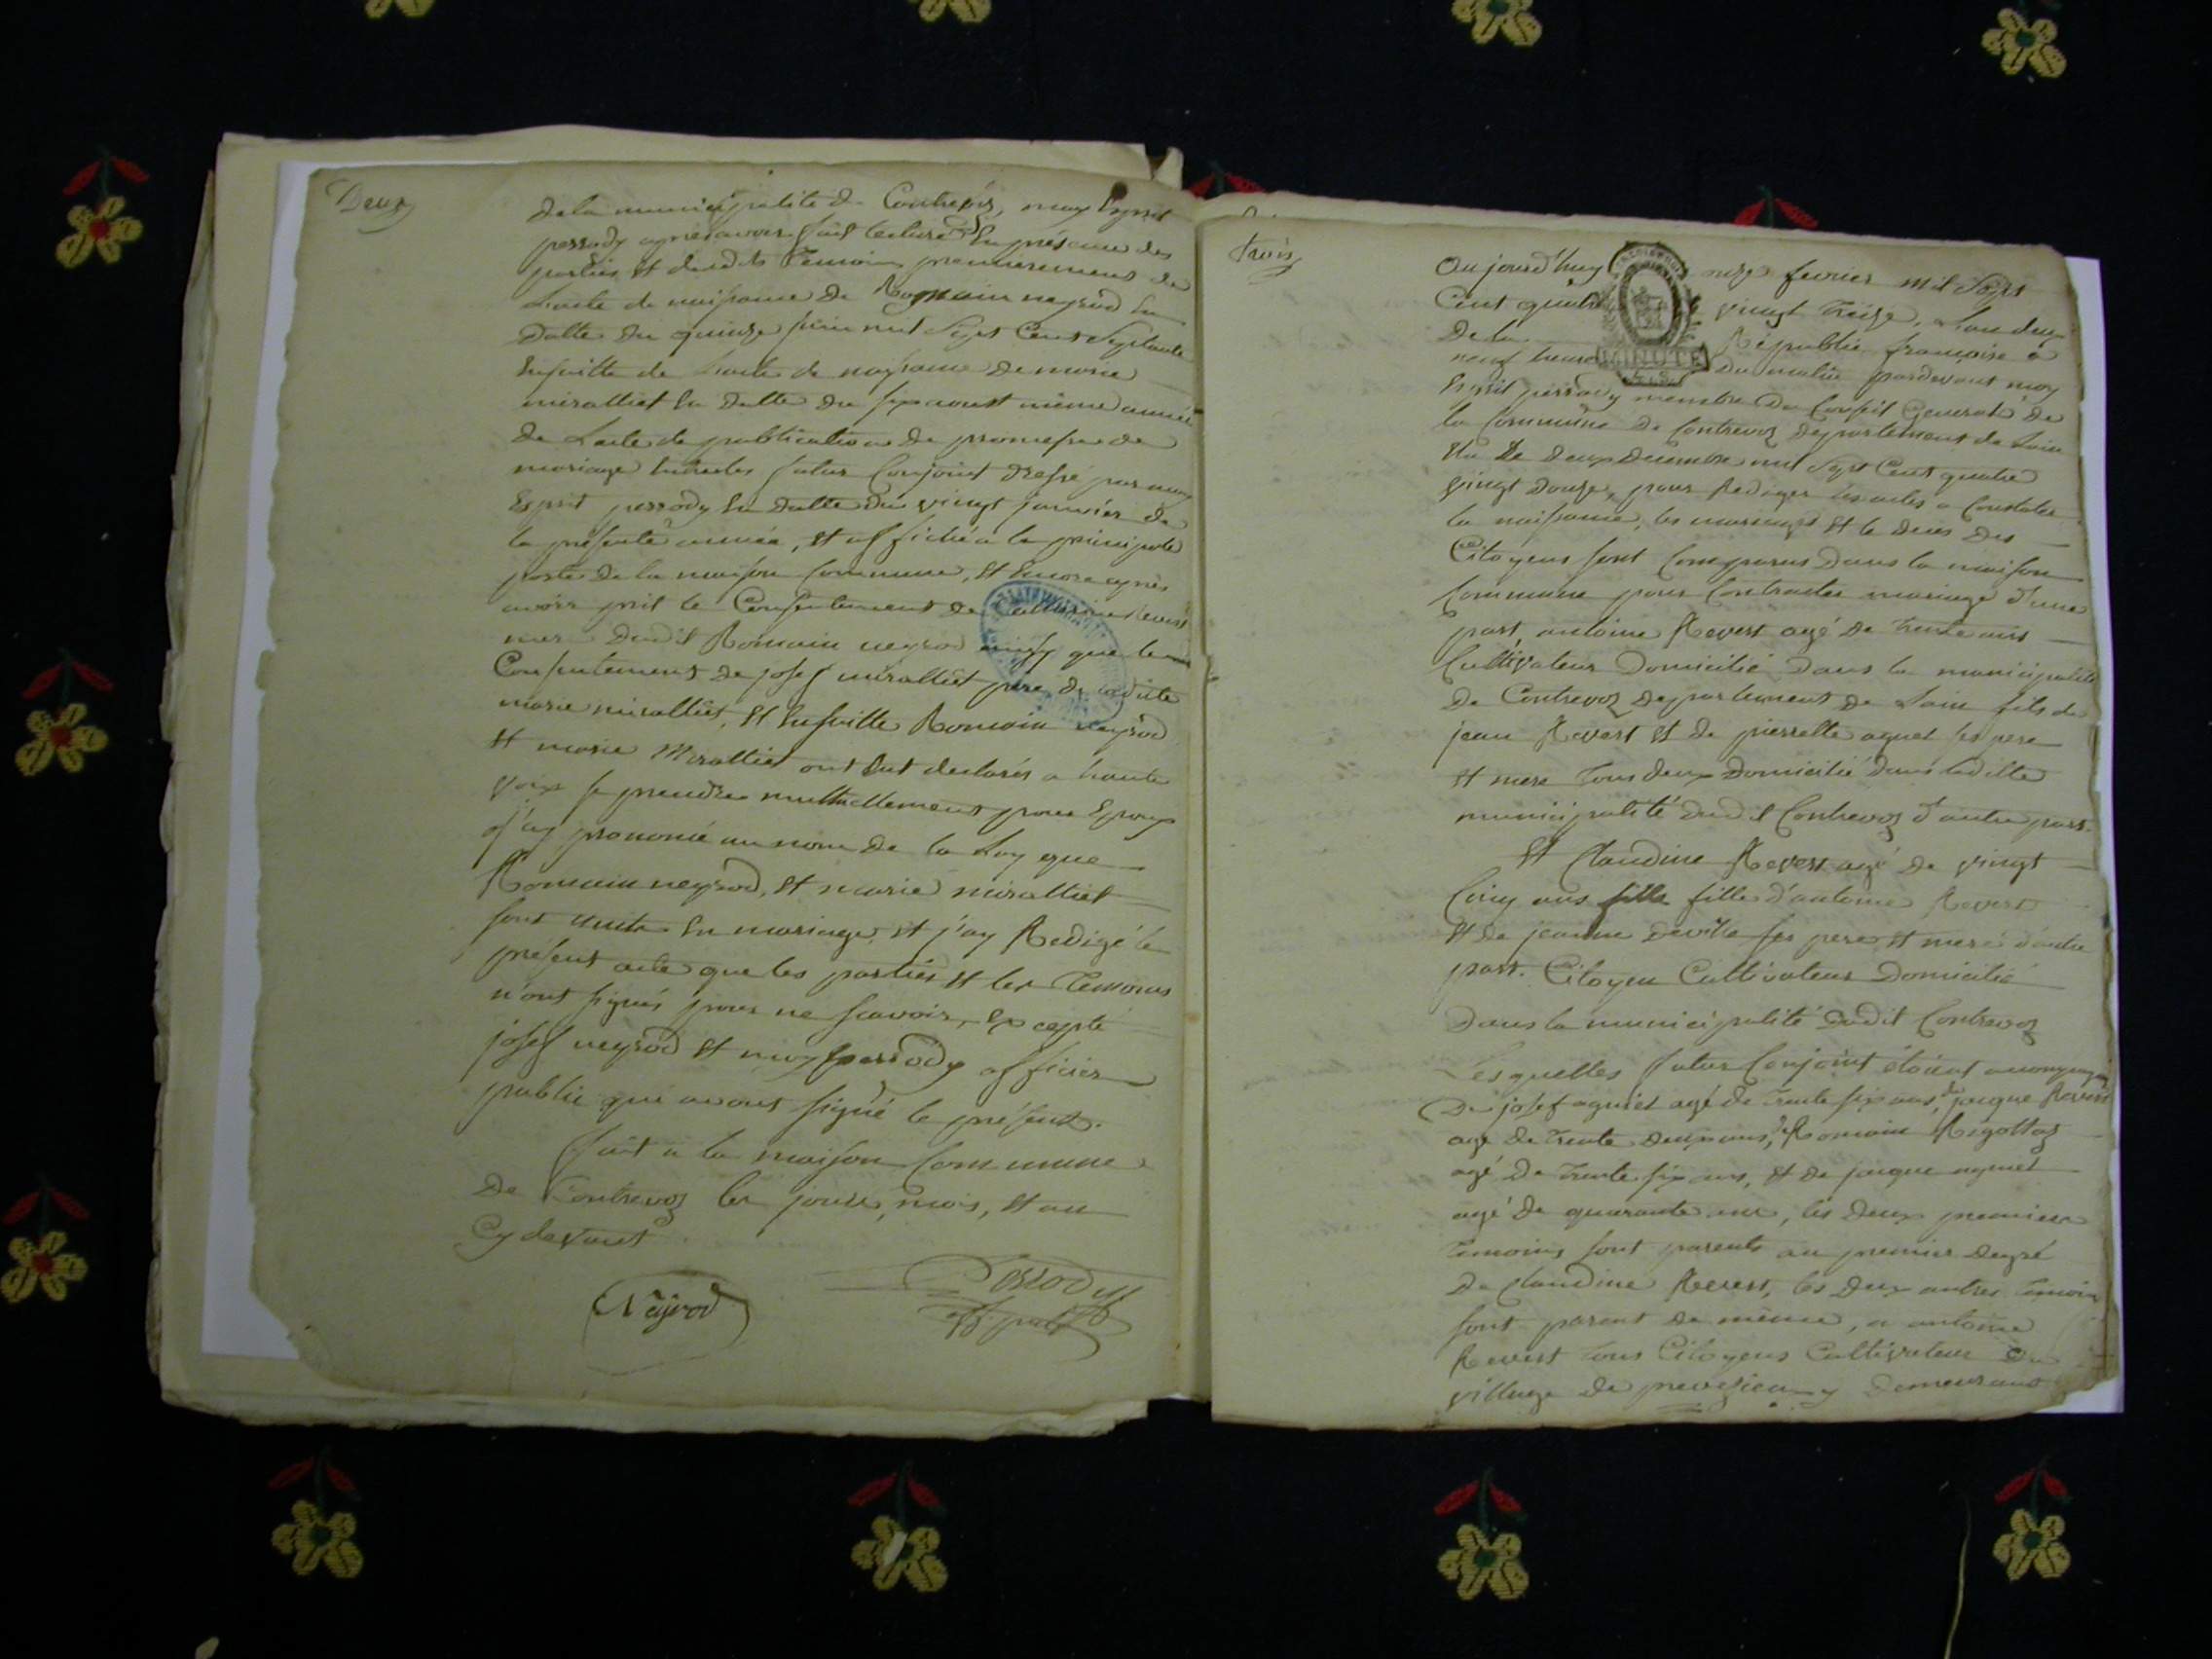 Deux
de la municipalité de Contrevoz, moy Esprit
perrody apres avoir fait lecture En présence des
parties et desdits Temoins premierement de
Lacte de naissance de Romain neyrod En
Datte du quinze juin mil Sept Cent Septante
Ensuitte de Lacte de naissance de marie
miralliet En datte du six aoust même année
De Lacte de publication de promesse de
mariage Entre les futur Conjoint dressé par moy
Esprit perrody En datte du vingt janvier de
la présente année, et affiché a la principale
porte de la maison Commune, et Encore après
avoir prit le Consentement de Revest
mere dudit Romain neyrod ainsy que le
Consentement de josef miralliet pere de laditte
marie miralliet, et Ensuitte Romain neyrod
et marie Miralliet ont declarés a haute
voix se prendre mutuellement pour Epoux
j'ay prononcé au nom de la Loy que
Romain neyrod, et marie miralliet
sont unite En mariage, et j'ay Redigé le
présent acte que les parties et les Temoins
n'ont signés pour ne scavoir, Excepté
josef neyrod et moy perrody officier
public qui avont signé le présent.
fait a la maison Commune
De Contrevoz les jours, mois, et an
Cy devant
Neyrod Perrody
Trois
Aujourd'huy onze fevrier mil Sept
Cent quatre vingt Treize, Lan deux
De la République francoise a
neuf heure MINUTE du matin pardevant moy
Esprit perrody membre du Conseil General de
la Commune de Contrevoz departement de Lain
Elu Le deux decembre mil Sept Cent quatre
vingt douze, pour Rediger les actes a Constater
la naissance, les mariages et le deces des
Citoyens sont Comparus Dans la maison
Commune pour Contracter mariage d'une
part, antoine Revest agé de Trente ans
Cultivateur Domicilié dans la municipalité
De Contrevoz departement de Lain fils de
jean Revest et de pierrette aguet ses pere
et mere Tous deux Domicilié dans laditte
municipalité dudit Contrevoz d'autre part.
Et Claudine Revest agé de vingt
Cinq ans fille fille d'antoine Revest
et de jeanne deville ses pere et mere d'autre
part. Citoyen Cultivateur Domicilié
Dans la municipalité dudit Contrevoz
Lesquelles futur Conjoint étoient accompagné
De josef aguiet agé de Trente six ans, de jacque Revest
agé de Trente deux ans, de Romain Rigottaz
agé de Trente six ans, et de jacque aguiet
agé de quarante ans, les deux premiers
Temoins sont parents au premier degré
De Claudine Revest, les deux autres Temoin
sont parent de même, a antoine
Revest tous Citoyens Cultivateur du
village de preveyzieu y demeurant